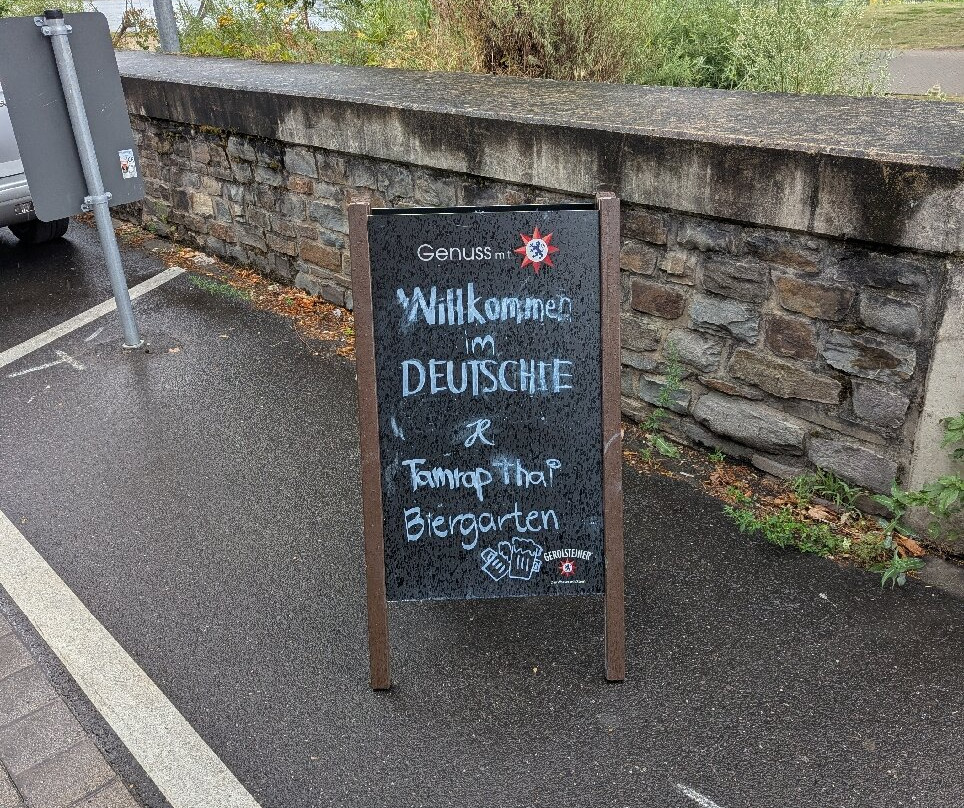 Genuss mit
Willkommen
im
DEUTSCHTE
&
Tamrap Thai
Biergarten
GEROLSTEINER